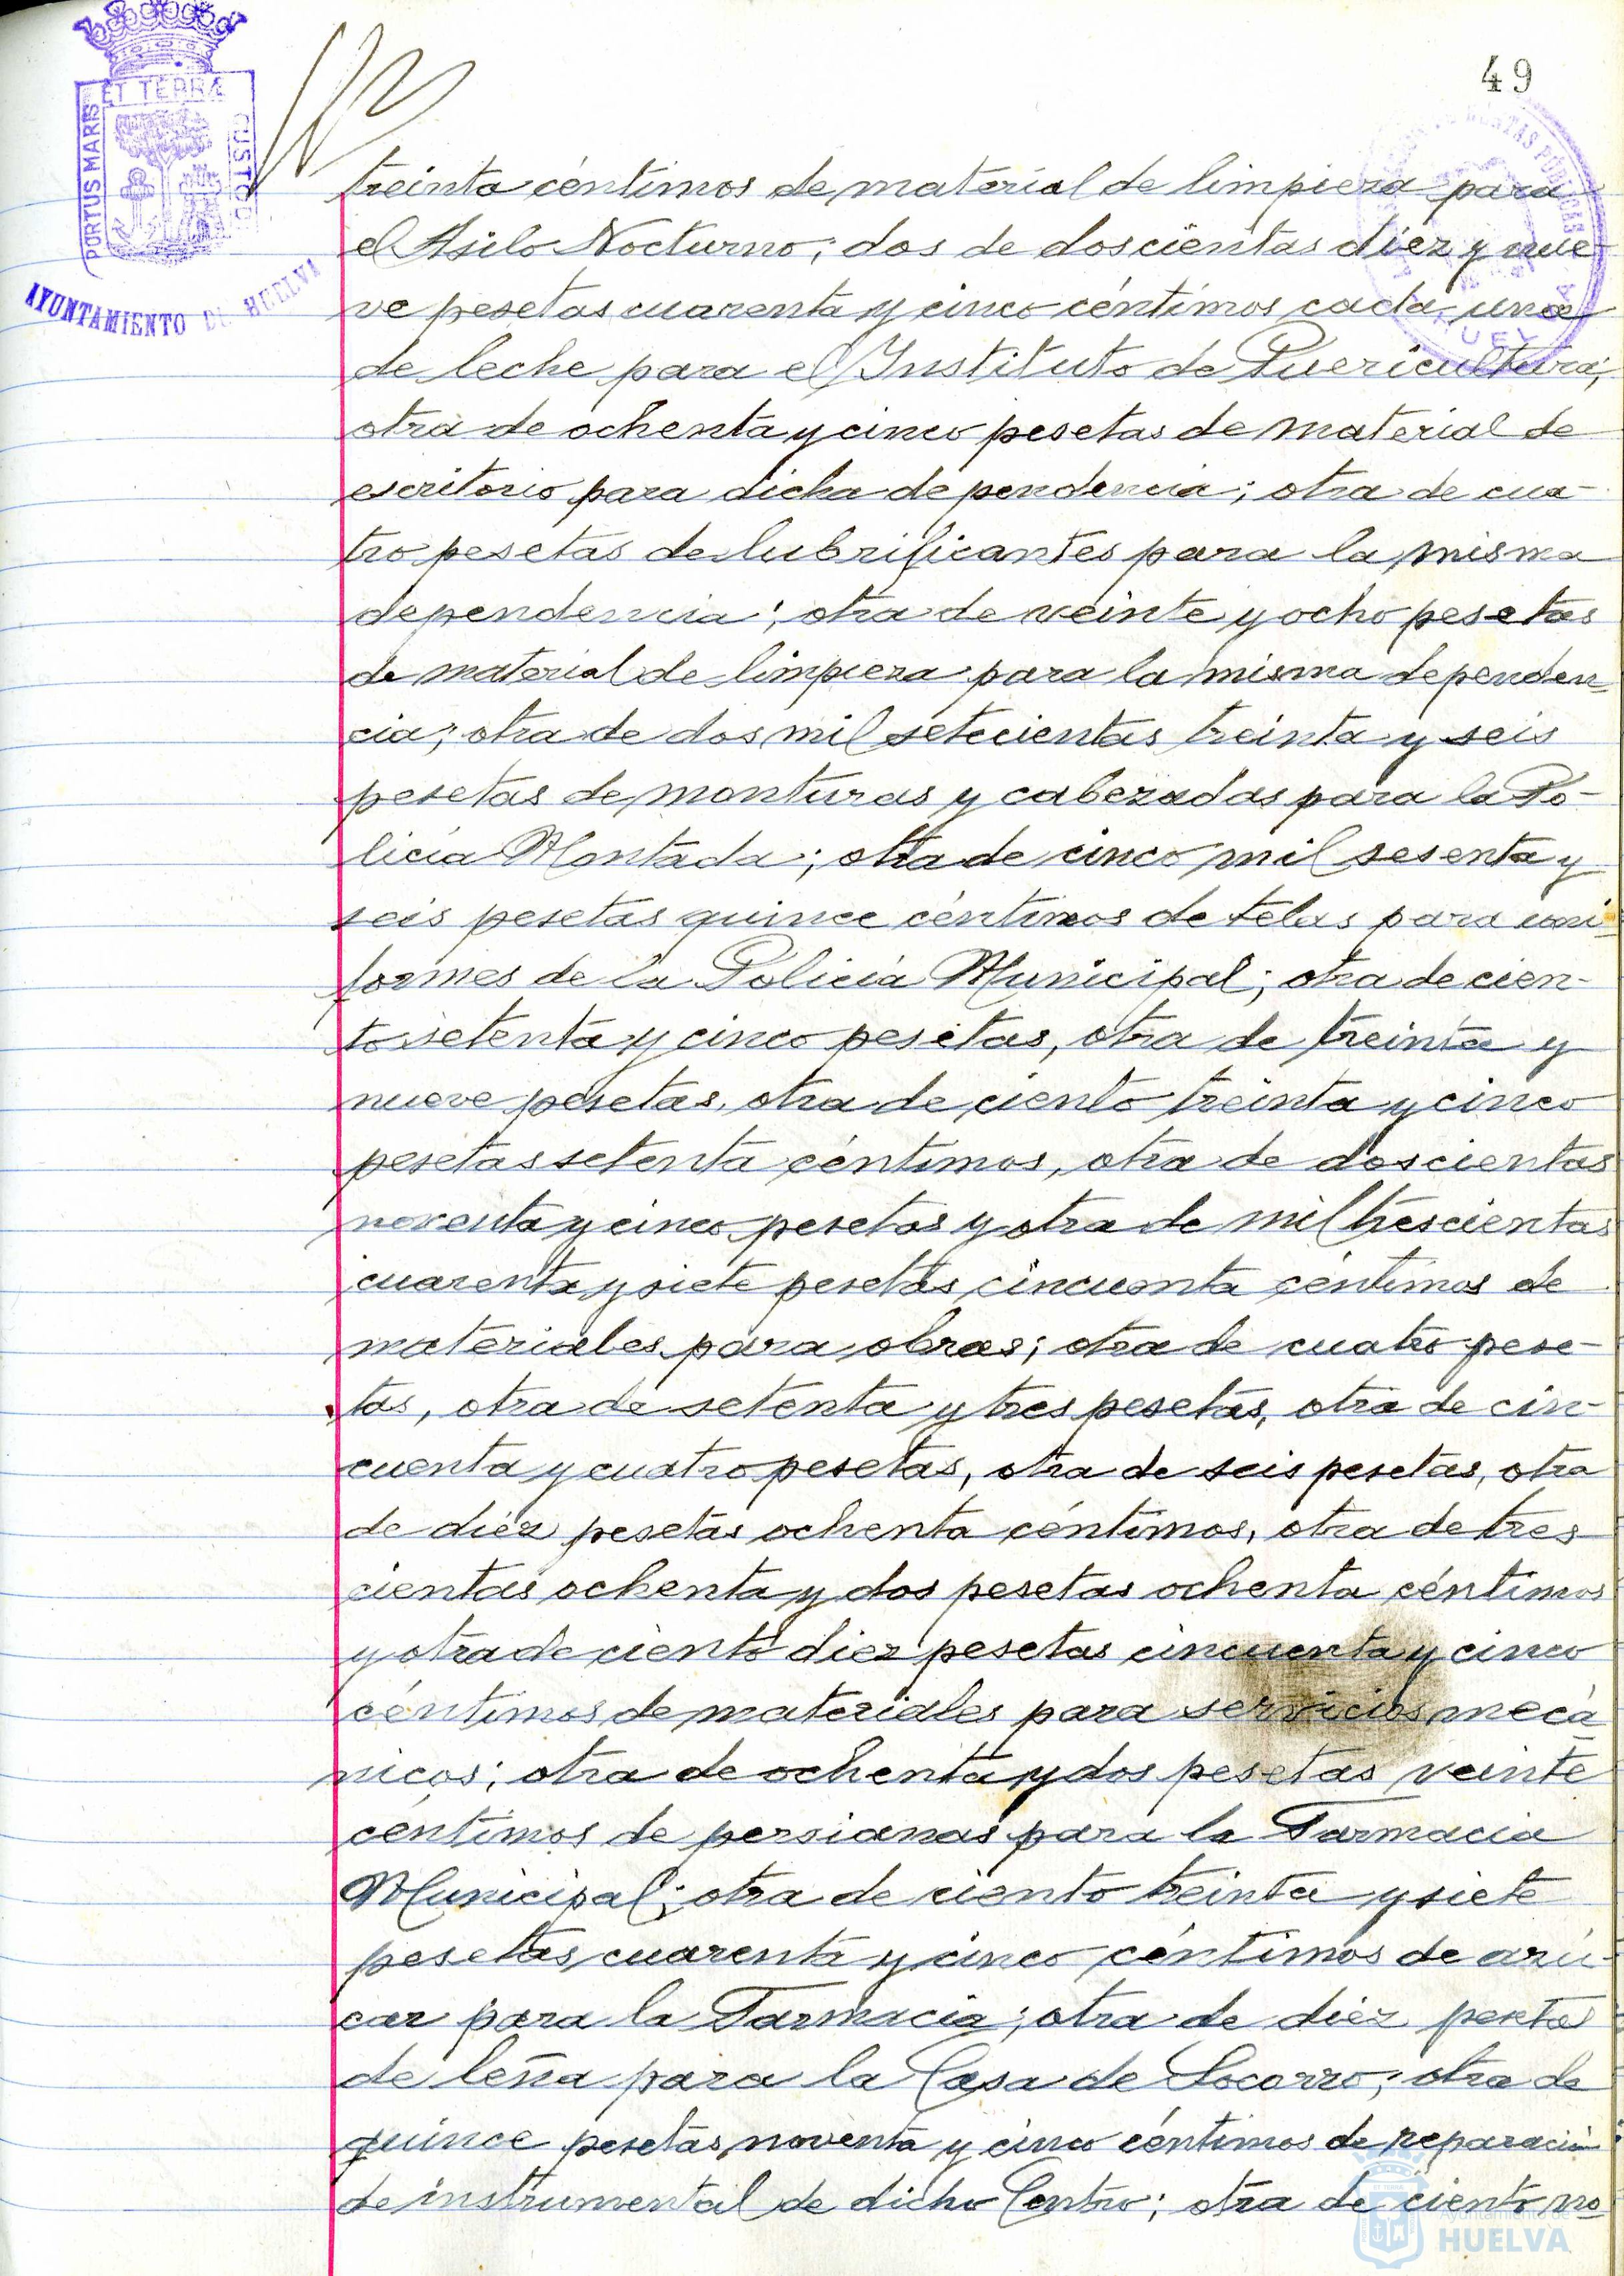 49
ET TERRÆ
PORTUS MARIS
CUSTODI
AYUNTAMIENTO DE HUELVA
HUELVA
treinta céntimos de material de limpieza para
el Asilo Nocturno; dos de doscientas diez y nue-
ve pesetas cuarenta y cinco céntimos cada una
de leche para el Instituto de Puericultura;
otra de ochenta y cinco pesetas de material de
escritorio para dicha dependencia; otra de cua-
tro pesetas de lubrificantes para la misma
dependencia; otra de veinte y ocho pesetas
de material de limpieza para la misma dependen-
cia; otra de dos mil setecientas treinta y seis
pesetas de monturas y cabezadas para la Po-
licía Montada; otra de cinco mil sesenta y
seis pesetas quince céntimos de telas para uni-
formes de la Policía Municipal; otra de cien-
to setenta y cinco pesetas, otra de treinta y
nueve pesetas, otra de ciento treinta y cinco
pesetas setenta céntimos, otra de doscientas
noventa y cinco pesetas y otra de mil trescientas
cuarenta y siete pesetas cincuenta céntimos de
materiales para obras; otra de cuatro pese-
tas, otra de setenta y tres pesetas, otra de cin-
cuenta y cuatro pesetas, otra de seis pesetas, otra
de diez pesetas ochenta céntimos, otra de tres
cientas ochenta y dos pesetas ochenta céntimos
y otra de ciento diez pesetas cincuenta y cinco
céntimos de materiales para servicios mecá
nicos; otra de ochenta y dos pesetas veinte
céntimos de persianas para la Farmacia
Municipal; otra de ciento treinta y siete
pesetas cuarenta y cinco céntimos de azú-
car para la Farmacia; otra de diez peseta
de leña para la Casa de Socorro; otra de
quince pesetas noventa y cinco céntimos de reparación
de instrumental de dicho Centro; otra de ciento no
Ayuntamiento de
HUELVA